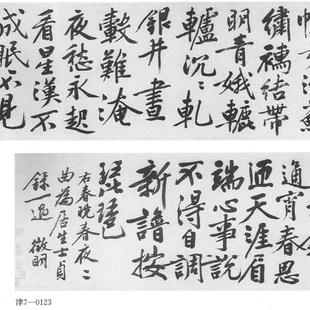 繡襦結帶
明青娥轆
轤沉〻軋
銀井畫
轂難淹
夜愁永起
看星漢不
成眠不見
通宵春思
迊天涯眉
端心事說
不得自調
新譜按
琵琶
右春晚春夜二
曲為居生士貞
錄一過 徵明
津7—0123